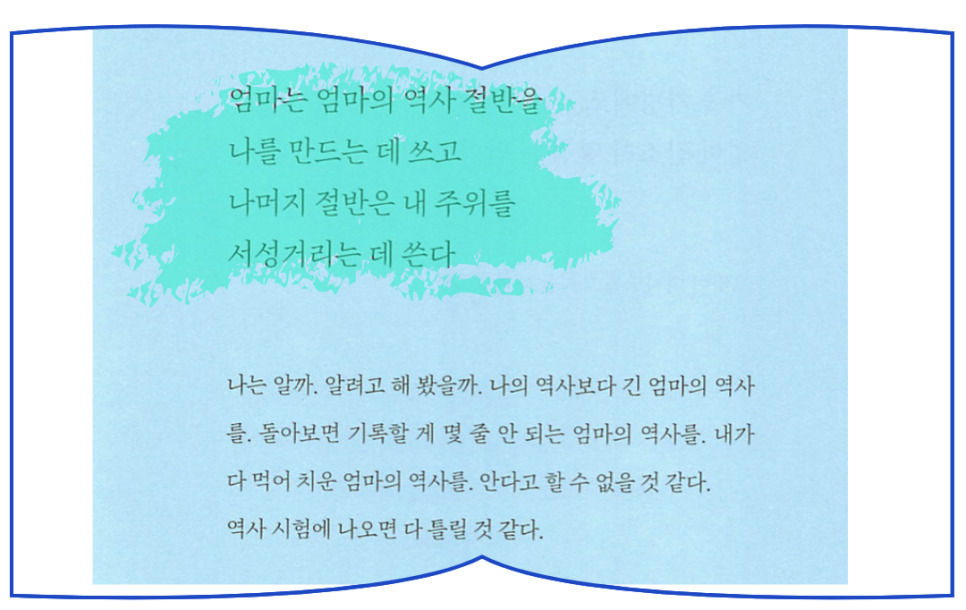 엄마는 엄마의 역사 절반을
나를 만드는 데 쓰고
나머지 절반은 내 주위를
서성거리는 데 쓴다
나는 알까. 알려고 해 봤을까. 나의 역사보다 긴 엄마의 역사
를. 돌아보면 기록할 게 몇 줄 안 되는 엄마의 역사를. 내가
다 먹어 치운 엄마의 역사를. 안다고 할 수 없을 것 같다.
역사 시험에 나오면 다 틀릴 것 같다.